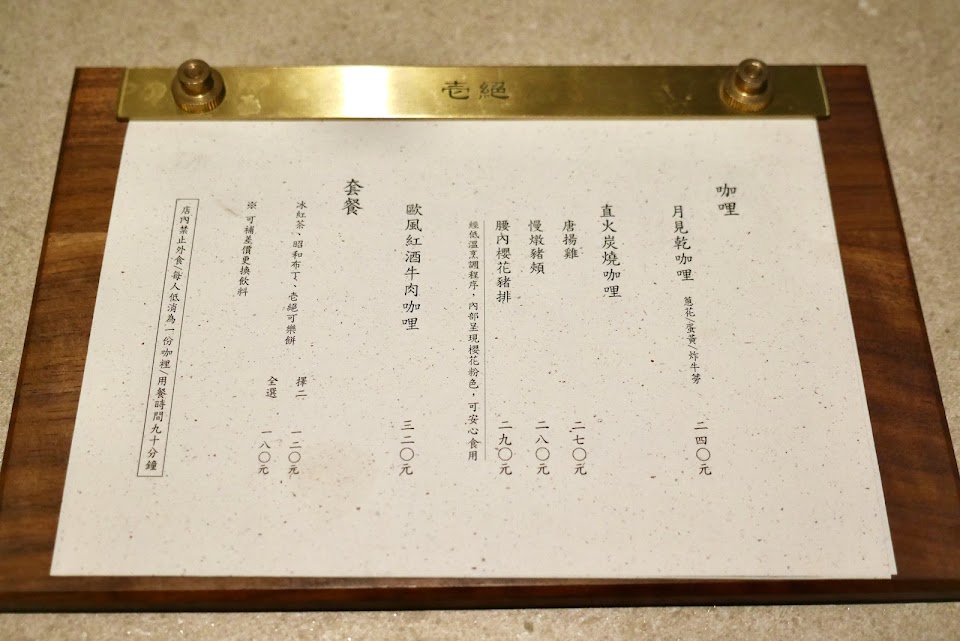 壱絕
咖哩
月見乾咖哩 蔥花/蛋黃/炸牛蒡 二四〇元
直火炭燒咖哩
唐揚雞 二七〇元
慢燉豬頰 二八〇元
腰內櫻花豬排 二九〇元
經低溫烹調程序，內部呈現櫻花粉色，可安心食用
歐風紅酒牛肉咖哩 三二〇元
套餐
冰紅茶、昭和布丁、壱絕可樂餅 擇二 一二〇元
全選 一八〇元
※ 可補差價更換飲料
店內禁止外食/每人低消為一份咖哩/用餐時間九十分鐘